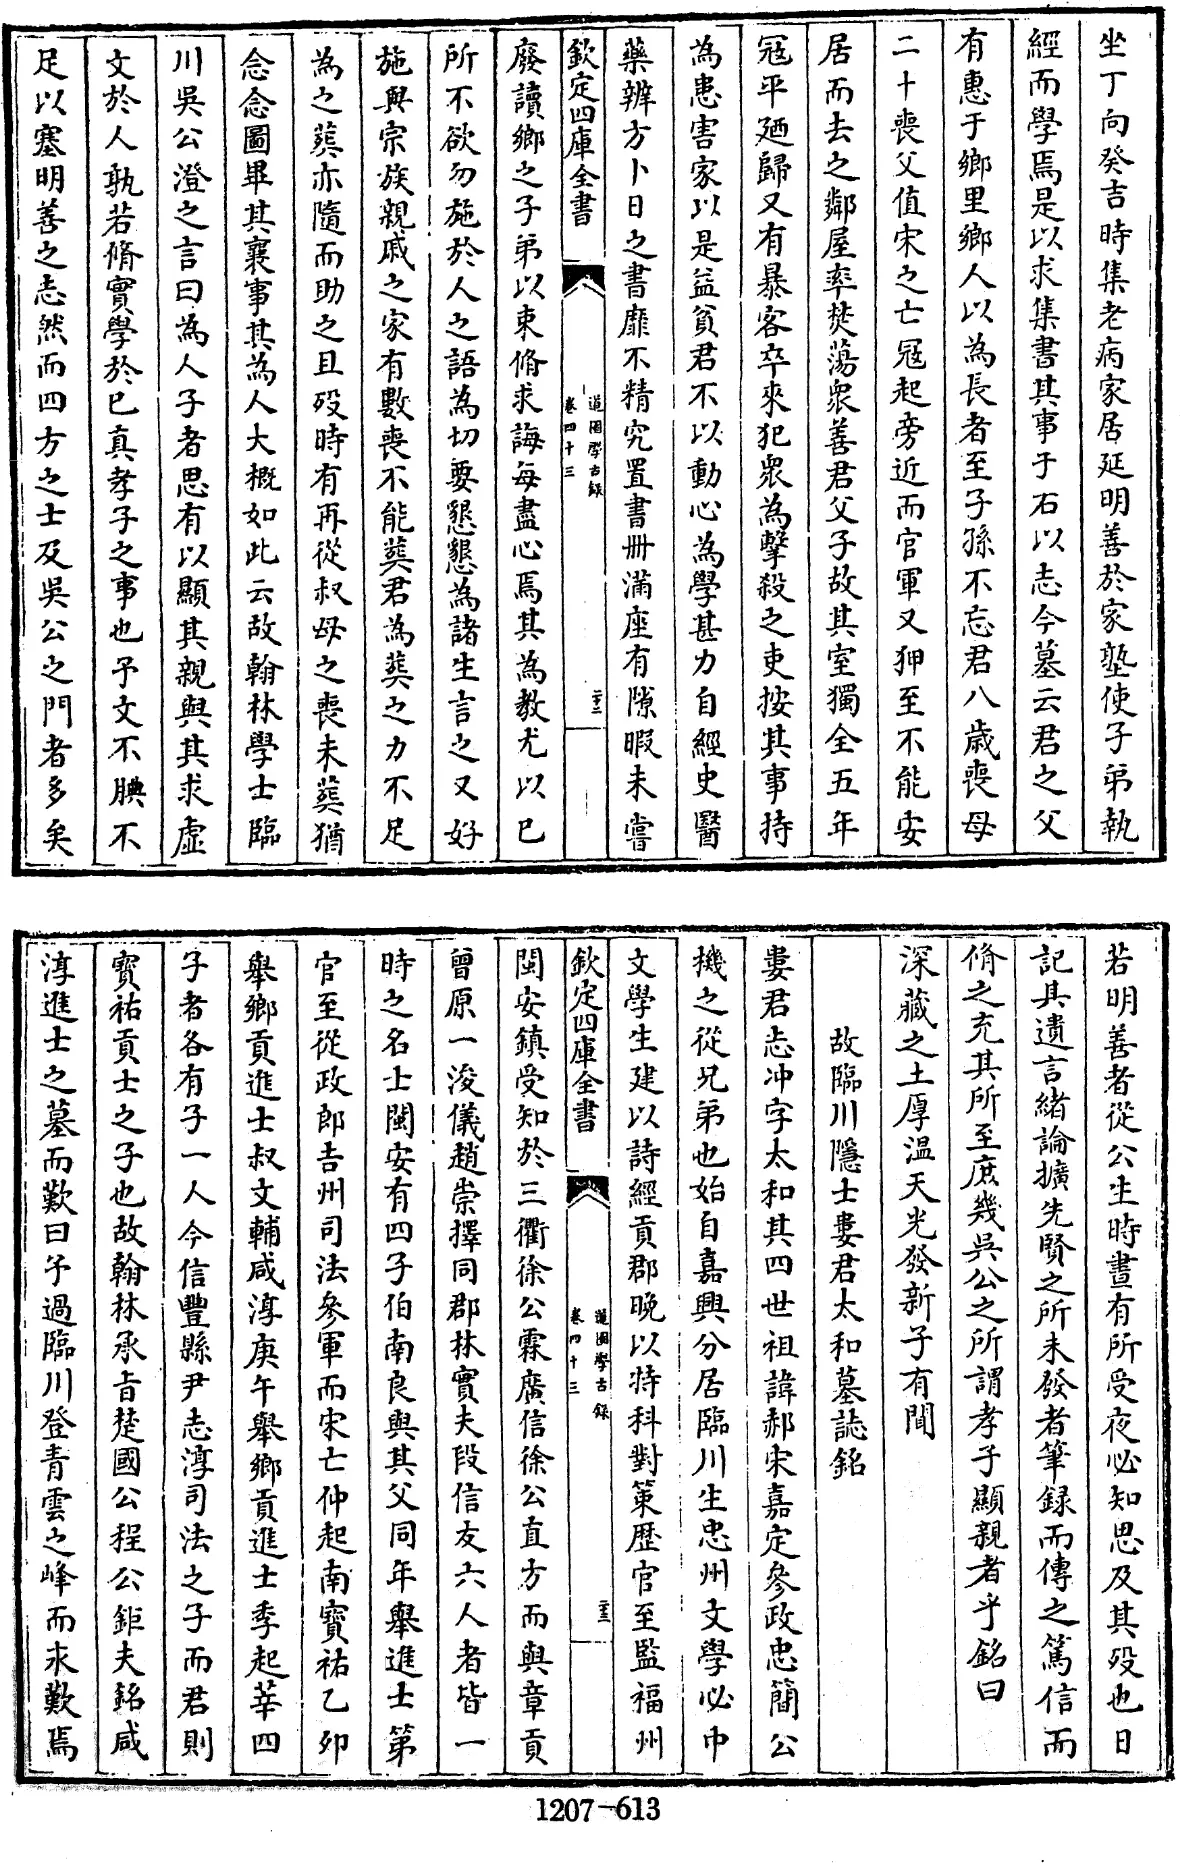 坐丁向癸吉時集老病家居延明善於家塾使子弟執
經而學焉是以求集書其事于石以志今墓云君之父
有惠于鄉里鄉人以為長者至子孫不忘君八歲喪母
二十喪父值宋之亡冦起旁近而官軍又狎至不能安
居而去之鄰屋率焚蕩衆善君父子故其室獨全五年
冦平廼歸又有暴客卒來犯衆為擊殺之吏按其事持
為患害家以是益貧君不以動心為學甚力自經史醫
藥辨方卜日之書靡不精究置書冊滿座有隙暇未嘗
欽定四庫全書
道園學古錄
卷四十三
二十二
廢讀鄉之子弟以束脩求誨每盡心焉其為教尤以已
所不欲勿施於人之語為切要懇懇為諸生言之又好
施與宗族親戚之家有數喪不能葬君為葬之力不足
為之葬亦隨而助之且歿時有再從叔母之喪未葬猶
念念圖畢其襄事其為人大概如此云故翰林學士臨
川吳公澄之言曰為人子者思有以顯其親與其求虛
文於人孰若脩實學於已真孝子之事也予文不腆不
足以塞明善之志然而四方之士及吳公之門者多矣
若明善者從公生時晝有所受夜必知思及其歿也日
記其遺言緒論擴先賢之所未發者筆録而傳之篤信而
脩之充其所至庶幾吳公之所謂孝子顯親者乎銘曰
深藏之土厚温天光發新子有聞
故臨川隱士婁君太和墓誌銘
婁君志冲字太和其四世祖諱郝宋嘉定參政忠簡公
機之從兄弟也始自嘉興分居臨川生忠州文學必中
文學生建以詩經貢郡晚以特科對策歷官至監福州
欽定四庫全書
道園學古錄
卷四十三
二十三
閩安鎮受知於三衢徐公霖廣信徐公直方而與章貢
曾原一浚儀趙崇擇同郡林實夫段信友六人者皆一
時之名士閩安有四子伯南良與其父同年舉進士第
官至從政郎吉州司法參軍而宋亡仲起南寳祐乙卯
舉鄉貢進士叔文輔咸淳庚午舉鄉貢進士季起莘四
子者各有子一人今信豐縣尹志淳司法之子而君則
寳祐貢士之子也故翰林承旨楚國公程公鉅夫銘咸
淳進士之墓而歎曰予過臨川登青雲之峰而永歎焉
1207-613